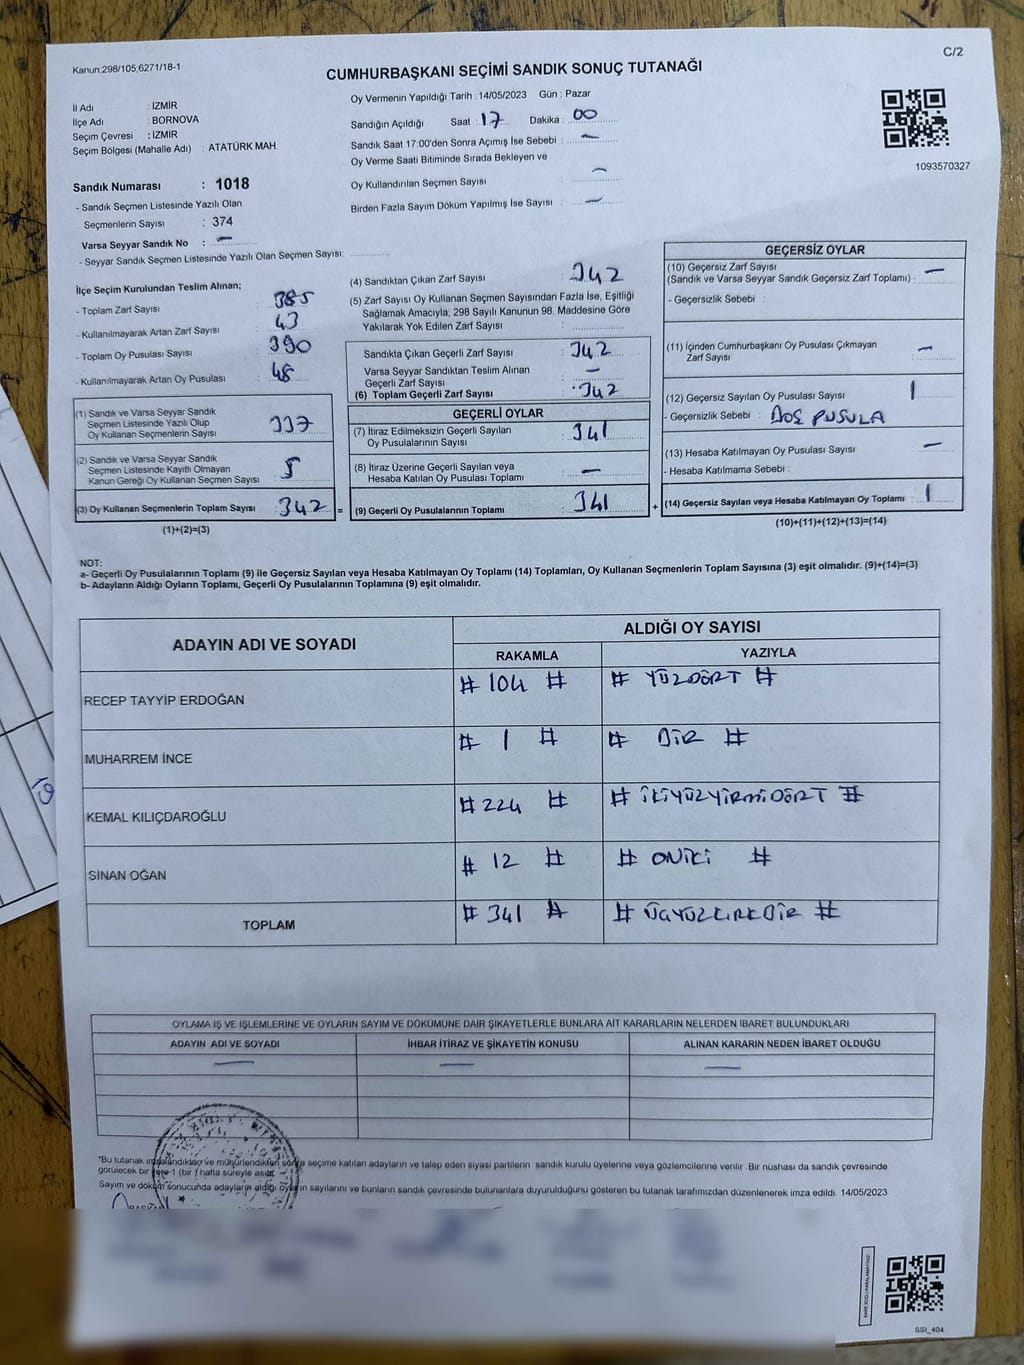 Kanun;298/105;6271/18-1
C/2
CUMHURBAŞKANI SEÇİMİ SANDIK SONUÇ TUTANAĞI
İl Adı : İZMİR
İlçe Adı : BORNOVA
Seçim Çevresi : İZMİR
Seçim Bölgesi (Mahalle Adı) : ATATÜRK MAH.
Sandık Numarası : 1018
- Sandık Seçmen Listesinde Yazılı Olan
Seçmenlerin Sayısı : 374
Varsa Seyyar Sandık No : —
- Seyyar Sandık Seçmen Listesinde Yazılı Olan Seçmen Sayısı:
Oy Vermenin Yapıldığı Tarih : 14/05/2023 Gün : Pazar
Sandığın Açıldığı Saat : 17 Dakika : 00
Sandık Saat 17:00'den Sonra Açımış İse Sebebi : —
Oy Verme Saati Bitiminde Sırada Bekleyen ve
Oy Kullandırılan Seçmen Sayısı : —
Birden Fazla Sayım Döküm Yapılmış İse Sayısı : —
1093570327
İlçe Seçim Kurulundan Teslim Alınan;
- Toplam Zarf Sayısı : 385
- Kullanılmayarak Artan Zarf Sayısı : 43
- Toplam Oy Pusulası Sayısı : 390
- Kullanılmayarak Artan Oy Pusulası : 48
(1) Sandık ve Varsa Seyyar Sandık
Seçmen Listesinde Yazılı Olup
Oy Kullanan Seçmenlerin Sayısı : 337
(2) Sandık ve Varsa Seyyar Sandık
Seçmen Listesinde Kayıtlı Olmayan
Kanun Gereği Oy Kullanan Seçmen Sayısı : 5
(3) Oy Kullanan Seçmenlerin Toplam Sayısı : 342 =
(1)+(2)=(3)
(4) Sandıktan Çıkan Zarf Sayısı : 342
(5) Zarf Sayısı Oy Kullanan Seçmen Sayısından Fazla İse, Eşitliği
Sağlamak Amacıyla; 298 Sayılı Kanunun 98. Maddesine Göre
Yakılarak Yok Edilen Zarf Sayısı :
Sandıkta Çıkan Geçerli Zarf Sayısı : 342
Varsa Seyyar Sandıktan Teslim Alınan
Geçerli Zarf Sayısı : —
(6) Toplam Geçerli Zarf Sayısı : 342
GEÇERLİ OYLAR
(7) İtiraz Edilmeksizin Geçerli Sayılan
Oy Pusulalarının Sayısı : 341
(8) İtiraz Üzerine Geçerli Sayılan veya
Hesaba Katılan Oy Pusulası Toplamı : —
(9) Geçerli Oy Pusulalarının Toplamı : 341 +
GEÇERSİZ OYLAR
(10) Geçersiz Zarf Sayısı
(Sandık ve Varsa Seyyar Sandık Geçersiz Zarf Toplamı) : —
- Geçersizlik Sebebi :
(11) İçinden Cumhurbaşkanı Oy Pusulası Çıkmayan
Zarf Sayısı : —
(12) Geçersiz Sayılan Oy Pusulası Sayısı : 1
- Geçersizlik Sebebi : BOŞ PUSULA
(13) Hesaba Katılmayan Oy Pusulası Sayısı : —
- Hesaba Katılmama Sebebi :
(14) Geçersiz Sayılan veya Hesaba Katılmayan Oy Toplamı : 1
(10)+(11)+(12)+(13)=(14)
NOT:
a- Geçerli Oy Pusulalarının Toplamı (9) ile Geçersiz Sayılan veya Hesaba Katılmayan Oy Toplamı (14) Toplamları, Oy Kullanan Seçmenlerin Toplam Sayısına (3) eşit olmalıdır. (9)+(14)=(3)
b- Adayların Aldığı Oyların Toplamı, Geçerli Oy Pusulalarının Toplamına (9) eşit olmalıdır.
ADAYIN ADI VE SOYADI ALDIĞI OY SAYISI
RAKAMLA YAZIYLA
RECEP TAYYİP ERDOĞAN # 104 # # YÜZDÖRT #
MUHARREM İNCE # 1 # # BİR #
KEMAL KILIÇDAROĞLU # 224 # # İKİYÜZYİRMİDÖRT #
SİNAN OĞAN # 12 # # ONİKİ #
TOPLAM # 341 # # ÜÇYÜZKIRKBİR #
OYLAMA İŞ VE İŞLEMLERİNE VE OYLARIN SAYIM VE DÖKÜMÜNE DAİR ŞİKAYETLERLE BUNLARA AİT KARARLARIN NELERDEN İBARET BULUNDUKLARI
ADAYIN ADI VE SOYADI İHBAR İTİRAZ VE ŞİKAYETİN KONUSU ALINAN KARARIN NEDEN İBARET OLDUĞU
— — —
*Bu tutanak imzalandıktan ve mühürlendikten sonra seçime katılan adayların ve talep eden siyasi partilerin sandık kurulu üyelerine veya gözlemcilerine verilir. Bir nüshası da sandık çevresinde
görülecek bir yere 1 (bir) hafta süreyle asılır.
Sayım ve döküm sonucunda adayların aldığı oyların sayılarını ve bunların sandık çevresinde bulunanlara duyurulduğunu gösteren bu tutanak tarafımızdan düzenlenerek imza edildi. 14/05/2023
SSI_404